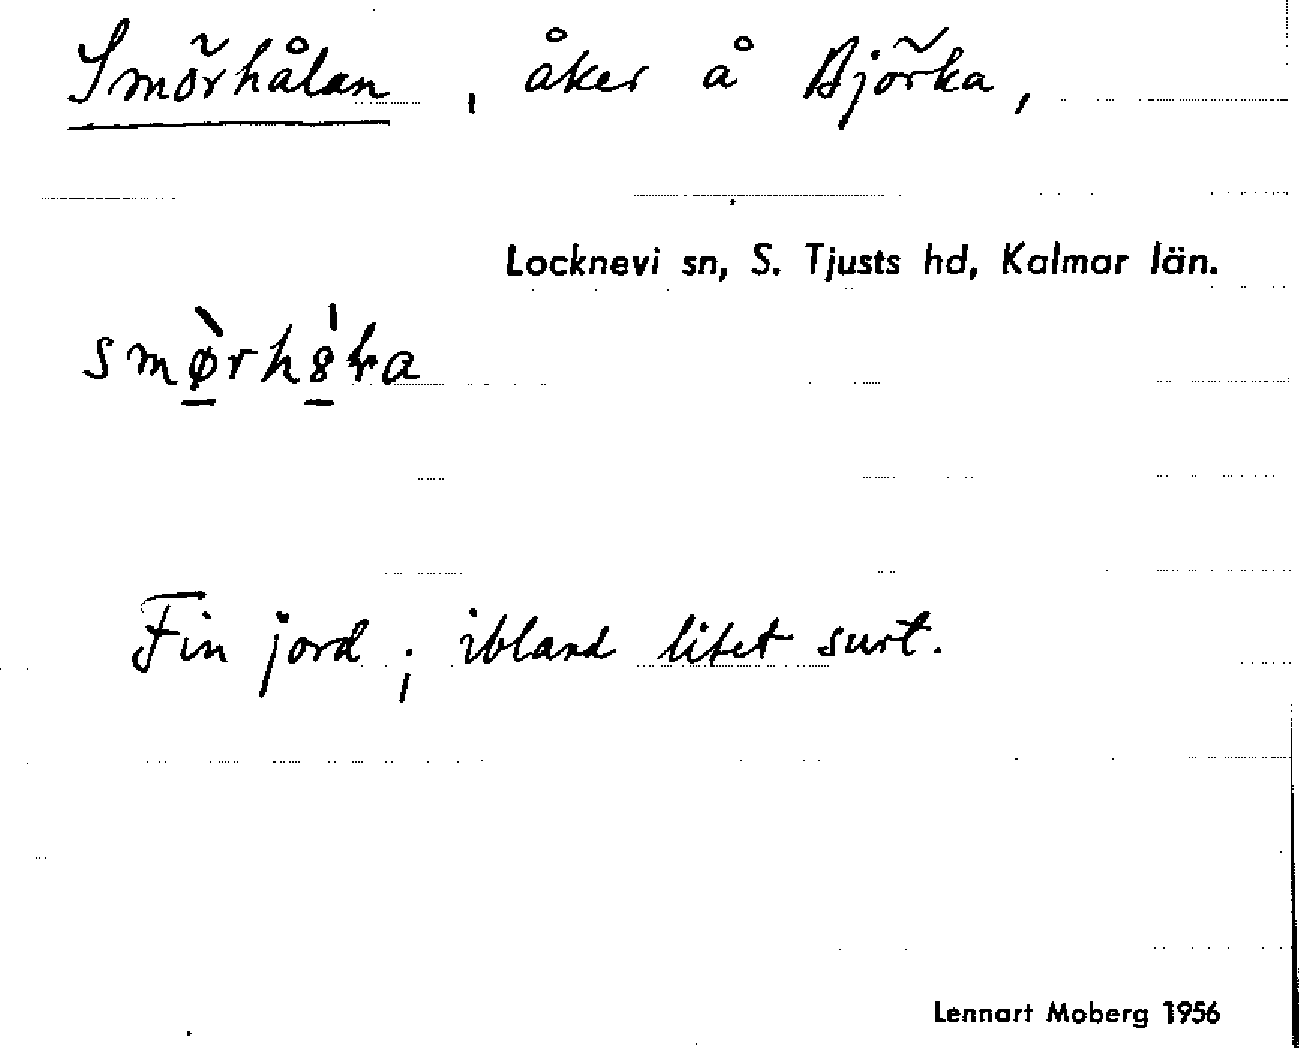 Smörhålan, åker å Björka,
Locknevi sn, S. Tjusts hd, Kalmar län.
Fin jord; ibland litet surt.
Lennart Moberg 1956